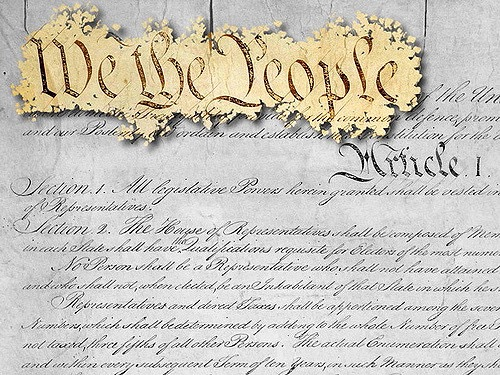 We the People
of the Un
defence, prom
and our Posterity, do ordain and establish this Constitution for the
Article. I.
Section. 1. All legislative Powers herein granted shall be vested in
of Representatives.
Section. 2. The House of Representatives shall be composed of Mem
in each State shall have the Qualifications requisite for Electors of the most numer
No Person shall be a Representative who shall not have attained
and who shall not, when elected, be an Inhabitant of that State in which he s
Representatives and direct Taxes shall be apportioned among the seve
Numbers, which shall be determined by adding to the whole Number of free
not taxed, three fifths of all other Persons. The actual Enumeration shall
and within every subsequent Term of ten Years, in such Manner as they sh